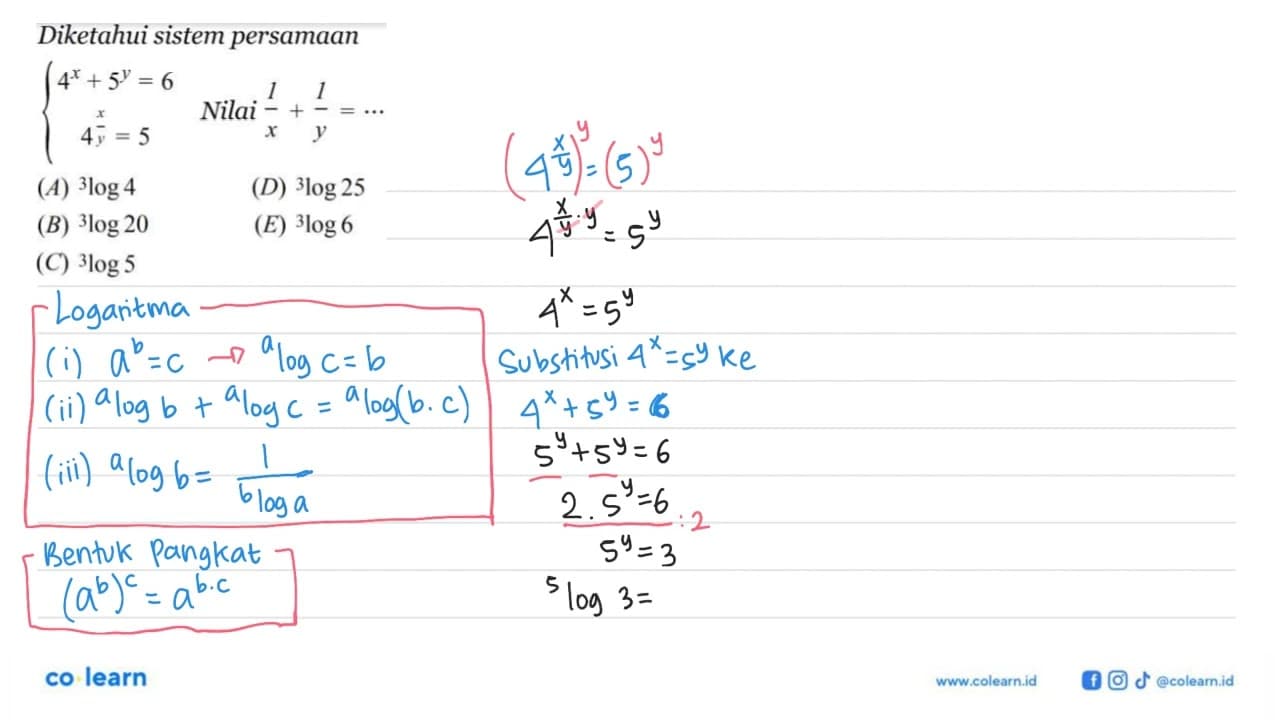 Diketahui sistem persamaan
4^x + 5^y = 6
4^(x/y) = 5
Nilai 1/x + 1/y = ...
(A) ³log 4
(D) ³log 25
(B) ³log 20
(E) ³log 6
(C) ³log 5
Logaritma
(i) a^b = c → ᵃlog c = b
(ii) ᵃlog b + ᵃlog c = ᵃlog(b . c)
(iii) ᵃlog b = 1/(ᵇlog a)
Bentuk Pangkat
(a^b)^c = a^(b.c)
(4^(x/y))^y = (5)^y
4^(x/y . y) = 5^y
4^x = 5^y
Substitusi 4^x = 5^y ke
4^x + 5^y = 6
5^y + 5^y = 6
2 . 5^y = 6 : 2
5^y = 3
⁵log 3 =
co learn
www.colearn.id
@colearn.id